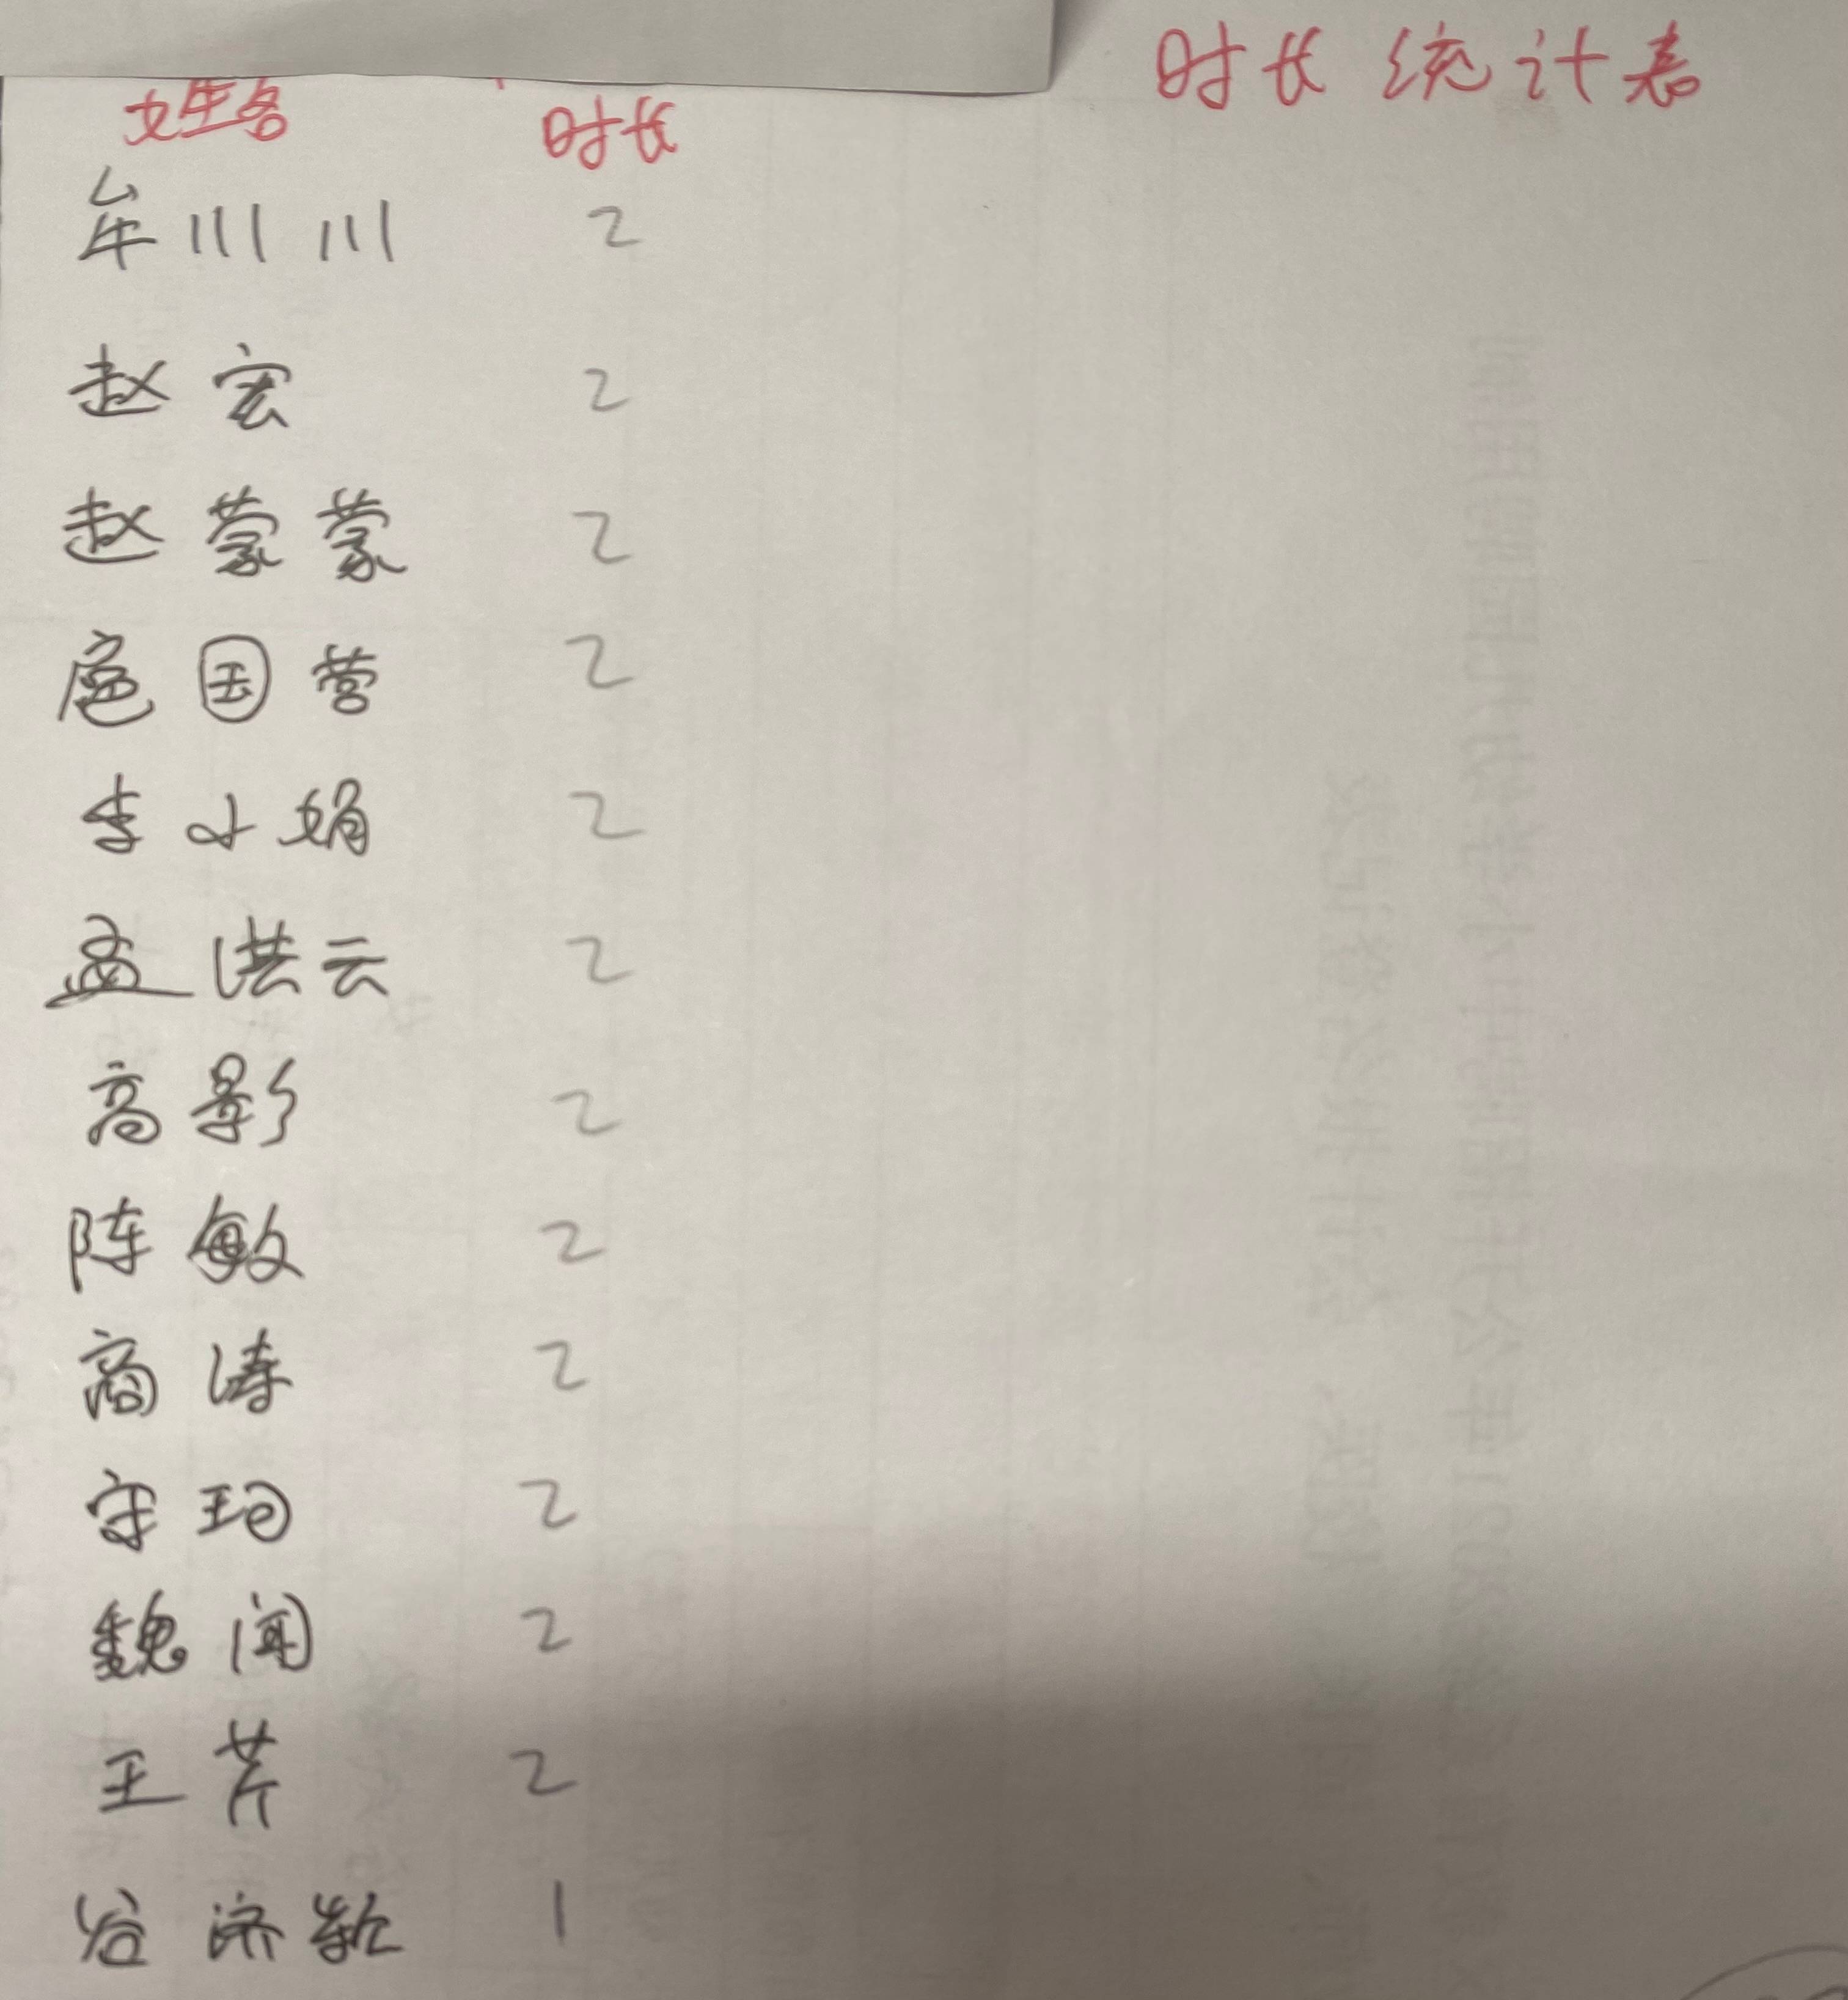 时长统计表
姓名 时长
牟川川 2
赵宏 2
赵蒙蒙 2
扈国营 2
李小娟 2
孟洪云 2
高影 2
陈敏 2
商涛 2
宋珂 2
魏闻 2
王芹 2
谷济 1